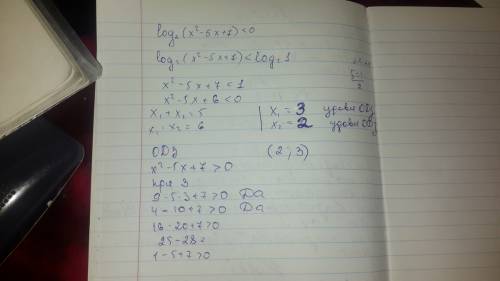 log₂(x²-5x+7)<0
log₂(x²-5x+7)<log₂1
x²-5x+7<1
x²-5x+6<0
x₁+x₂=5
x₁·x₂=6
x₁=3 удовл ОДЗ
x₂=2 удовл ОДЗ
ОДЗ
(2;3)
x²-5x+7>0
при 3
9-5·3+7>0 Да
4-10+7>0 Да
16-20+7>0
25-28=
1-5+7>0